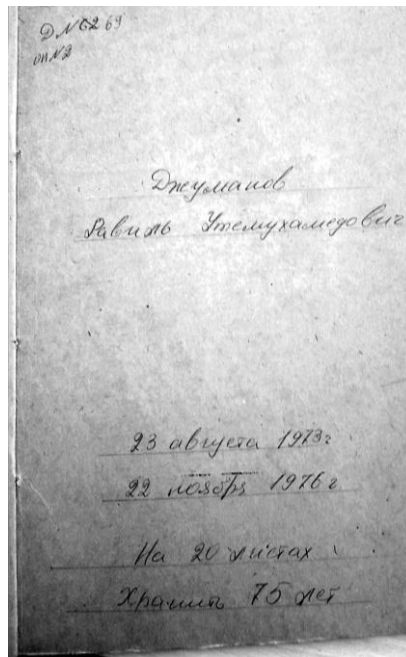 Д№6269
оп№2
Джуманов
Равиль Утемухамедович
23 августа 1973г
22 ноября 1976г
На 20 листах
Хранить 75 лет